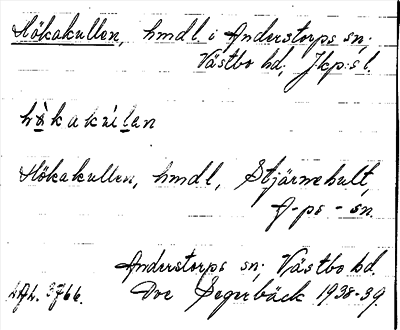 Hökakullen, hmdl i Anderstorps sn;
Västbo hd; Jkp:s l.
Hökakullen, hmdl, Stjärnehult,
A-ps-sn.
Anderstorps sn; Västbo hd.
3766. Ove Segerbäck 1938-39.